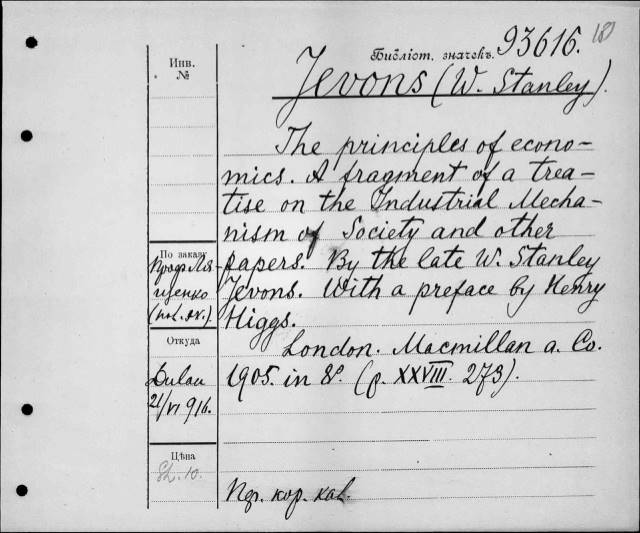 Библіот. значекъ. 93616.
Инв. №
Jevons (W. Stanley).
The principles of econo-
mics. A fragment of a trea-
tise on the Industrial Mecha-
nism of Society and other
papers. By the late W. Stanley
Jevons. With a preface by Henry
Higgs.
London. Macmillan a. Co.
1905. in 8º. (p. XXVIII. 273).
По заказу
Проф. Ля-
щенко
Откуда
Dulau
21/VI 916.
Цѣна
Sh. 10.
кор. кал.